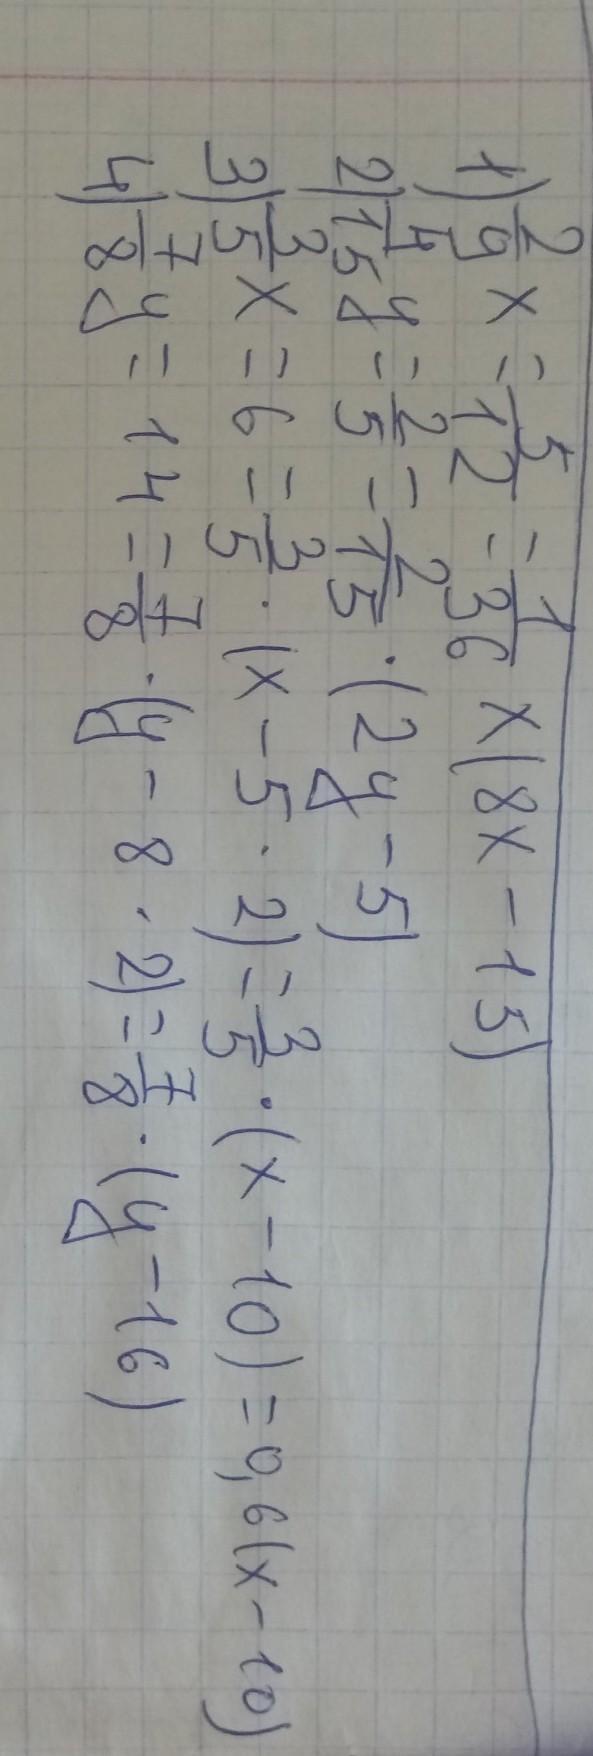 1) 2/9 x = 5/12 = 1/36 x(8x - 15)
2) 4/15 y = 2/5 = 2/15 · (2y - 5)
3) 3/5 x = 6 = 3/5 · (x - 5 · 2) = 3/5 · (x - 10) = 0,6(x - 10)
4) 7/8 y = 14 = 7/8 · (y - 8 · 2) = 7/8 · (y - 16)